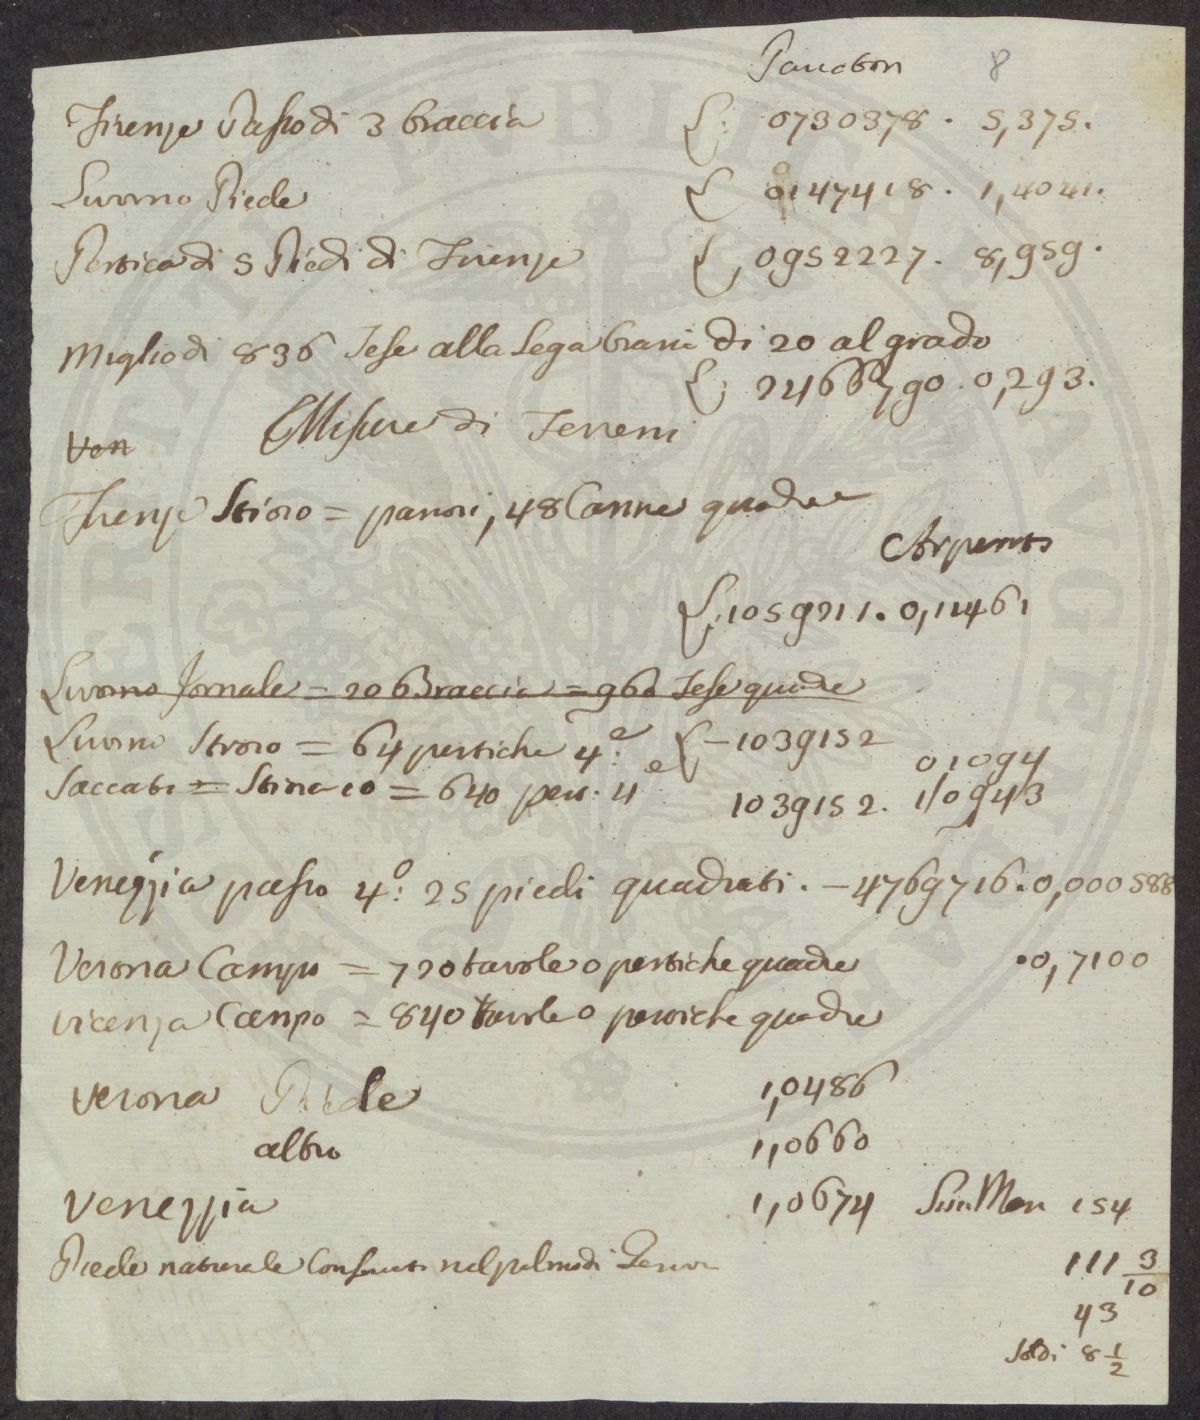 Paucton 8
Firenze Passo di 3 braccia L: 0730378. 5,375.
Livorno Piede L 0147418. 1,4041.
Pertica di 5 Piedi di Firenze L, 0952227. 8,959.
Miglio di 836 Tese alla Lega di 20 al grado
L; 2466790. 0,293.
Misure di Terreni
Ven
Firenze Stioro = panori, 48 Canne quadre
Arpents
L;1059211. 0,11461
Livorno Jornale = 20 Braccia = 960 Tese quadre
Livorno Stioro = 64 pertiche 4.e L-1039152
0,1094
Saccato = Stiora 10 = 640 per. 4e 1039152. 1,0943
Venezzia passo 4o: 25 piedi quadrati. -4769716.0,000588
Verona Campo = 720 tavole o pertiche quadre .0,7100
vicenza Campo = 840 tavole o pertiche quadre
Verona Piede 1,0486
altro 1,0660
Venezzia 1,0674 154
Piede naturale nel palmo di 111 3/10
43
Soldi 8 1/2